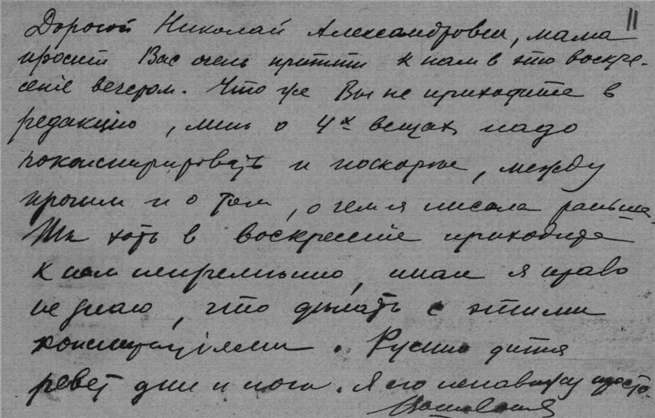 11
Дорогой Николай Александрович, мама
просит Вас очень притти к нам в это воскре-
сеніе вечером. Что же Вы не приходите в
редакцию, мнѣ о 4х вещах надо
и поскорѣе, между
прочим и о том, о чем я писала раньше.
хоть в воскресеніе приходите
к нам непремѣнно, иначе я право
не знаю, что дѣлать с этими
. дитя
ревет дни и ночи. Я его ненавижу просто.